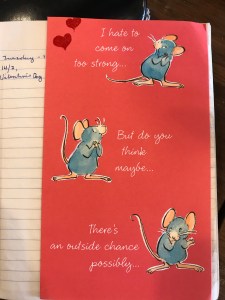 I hate to
come on
too strong...
But do you
think
maybe...
There's
an outside chance
possibly...
14/2,
Valentine's Day.